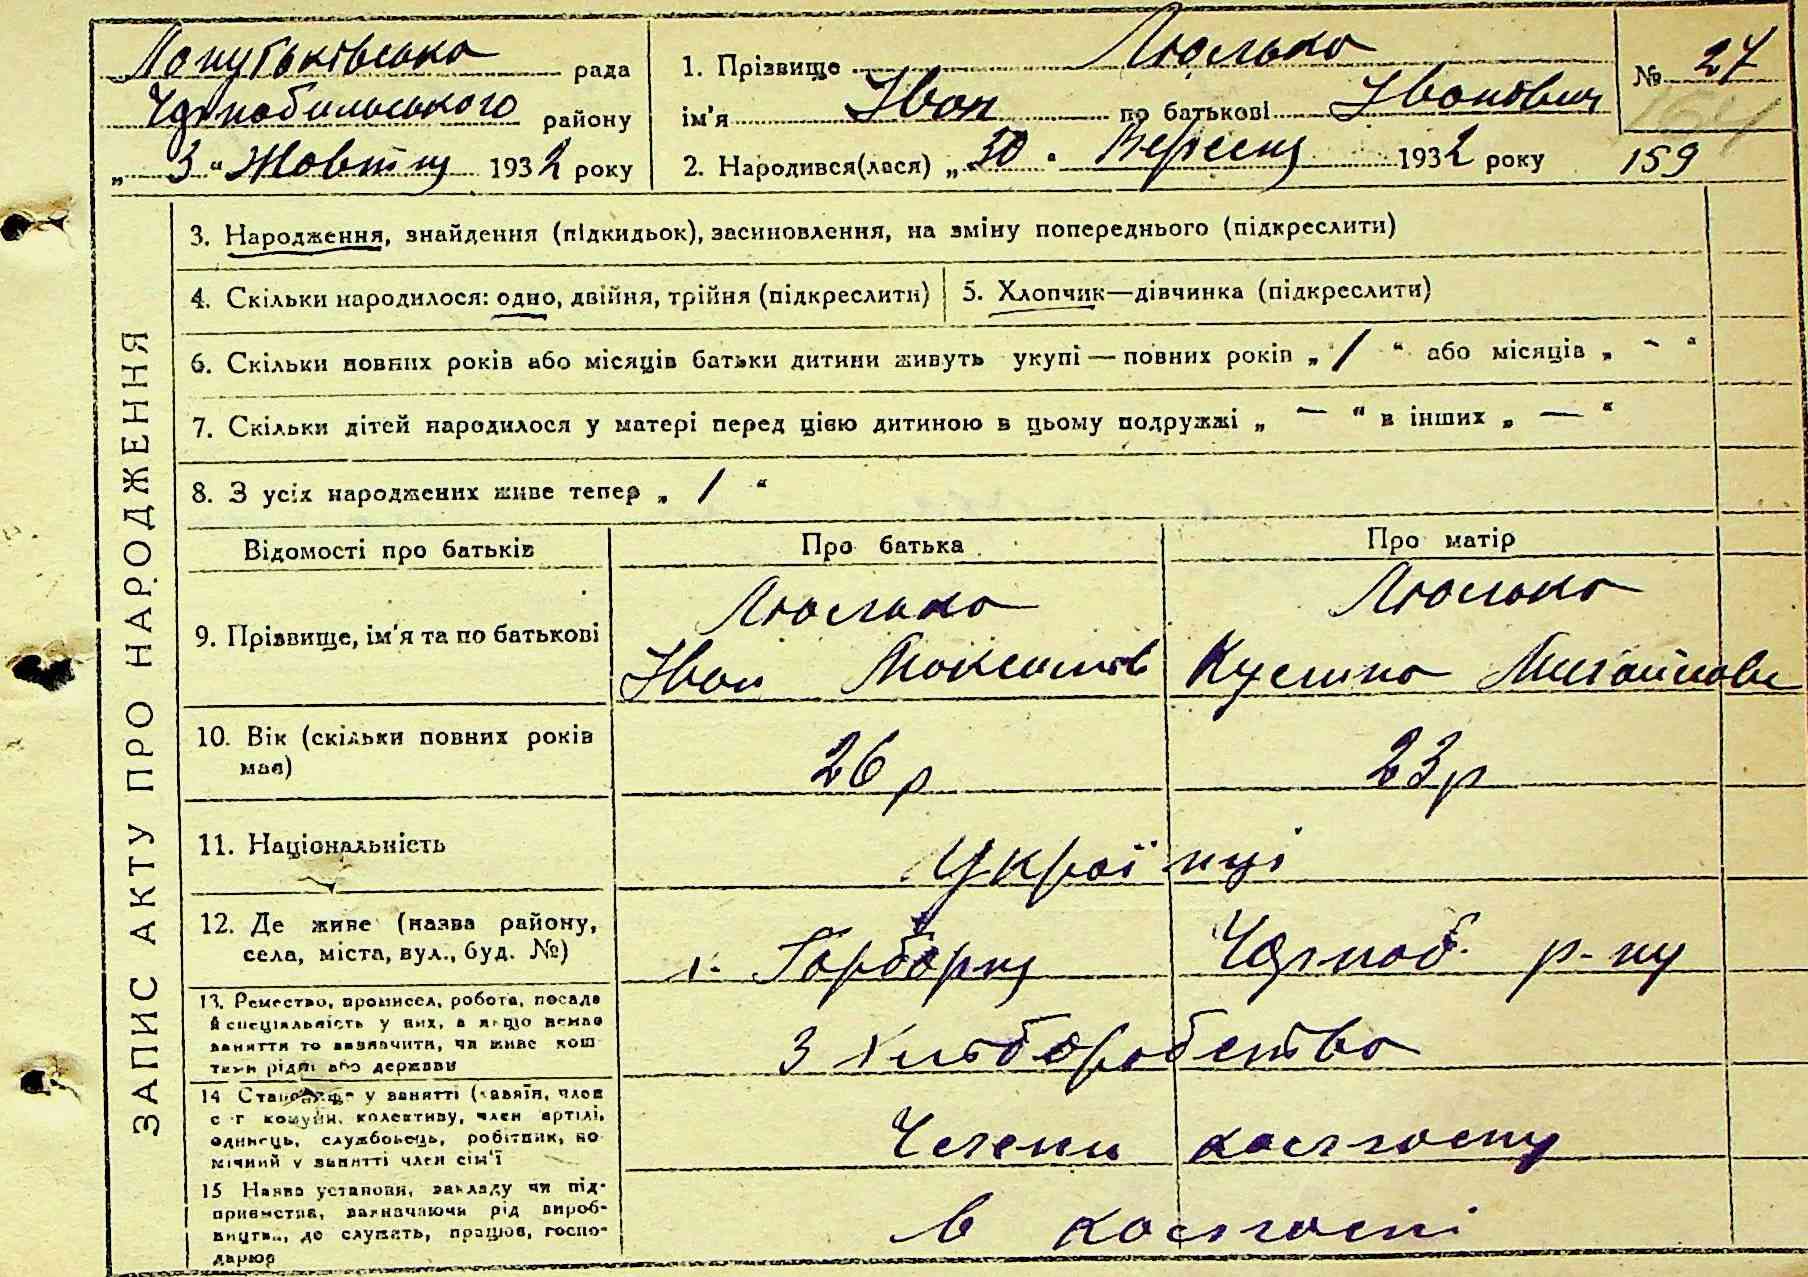 Лопутьківська рада
Чорнобильського району
„ 3 “ Жовтня 1932 року
1. Прізвище Люлько
ім'я Іван по батькові Іванович
2. Народився(лася) „ 30 “ Вересня 1932 року
№ 27
164
159
ЗАПИС АКТУ ПРО НАРОДЖЕННЯ
3. Народження, знайдення (підкидьок), засиновлення, на зміну попереднього (підкреслити)
4. Скільки народилося: одно, двійня, трійня (підкреслити)
5. Хлопчик—дівчинка (підкреслити)
6. Скільки повних років або місяців батьки дитини живуть укупі — повних років „ 1 “ або місяців „ – “
7. Скільки дітей народилося у матері перед цією дитиною в цьому подружжі „ — “ в інших „ — “
8. З усіх народжених живе тепер „ 1 “
Відомості про батьків
Про батька
Про матір
9. Прізвище, ім'я та по батькові
Люлько
Іван
Люлько
10. Вік (скільки повних років має)
26 р
23 р
11. Національність
Українці
12. Де живе (назва району, села, міста, вул., буд. №)
Чорноб. р-ну
13. Ремество, промисел, робота, посада й спеціяльність у них, а якщо немає заняття то зазначити, чи живе коштами рідні або держави
З хліборобства
14 Становище у занятті (хазяїн, член с-г комуни, колективу, член артілі, одинець, службовець, робітник, помічний у занятті член сім'ї
Члени колгоспу
15 Назва установи, закладу чи підприємства, зазначаючи рід виробництва, де служить, працює, господарює
в колгоспі